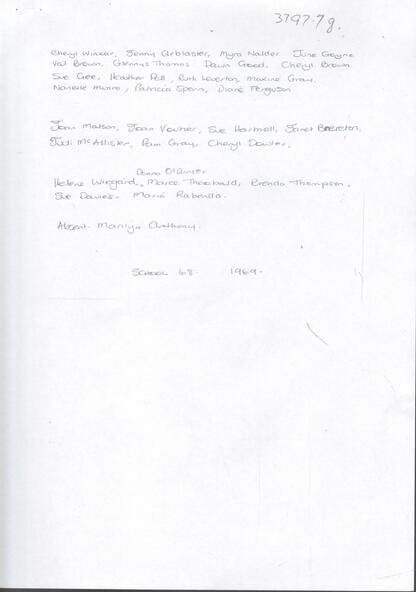 3797.7g.
Cheryl Winzar, Jenny Arblaster, Myra Nalder June Gayne
Val Brown, Glennys Thomas Dawn Good, Cheryl Brown
Sue Gee, Heather Pall, Ruth Leverton, Maxine Gray,
Nanette Munro, Patricia Sporn, Diane Ferguson
Joan Matson, Joan Voutier, Sue Hartnell, Janet Brereton,
Judi McAllister, Pam Gray, Cheryl Dowler,
Donna O'Dwyer
Helene Wiegard, Maree Theobald, Brenda Thompson,
Sue Davies. Maria Rabenda.
Absent. Marilyn Anthony.
SCHOOL 68. 1969.